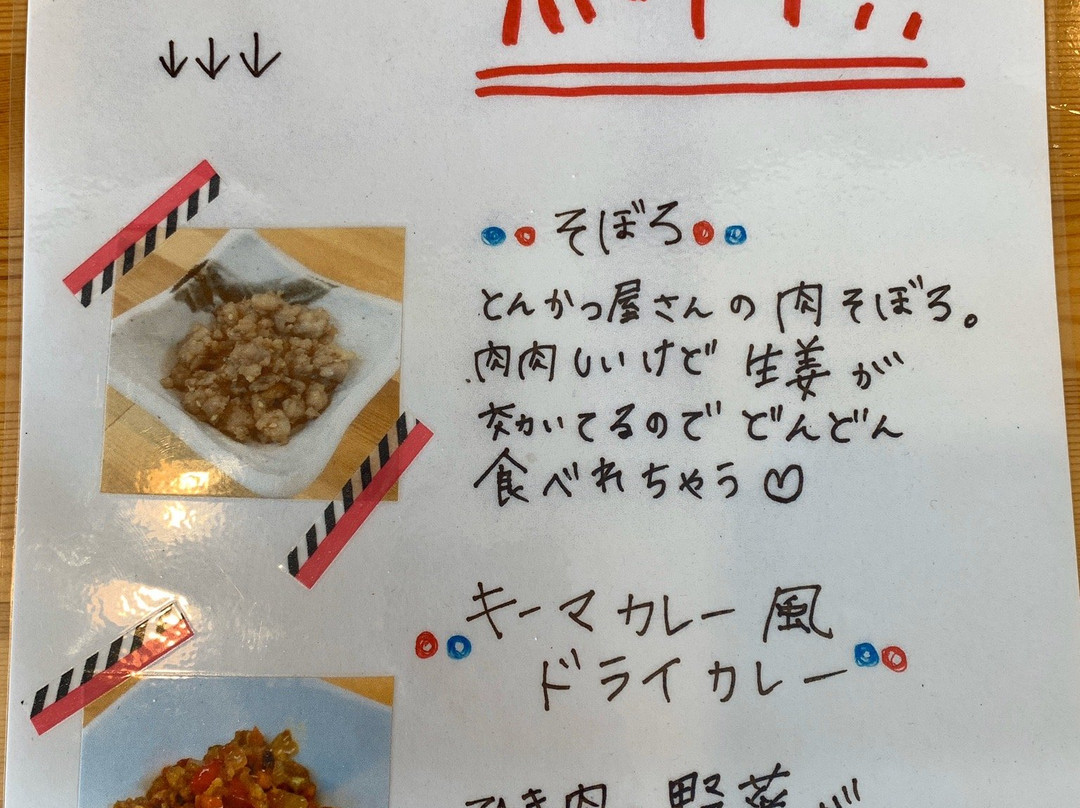 ↓↓↓
そぼろ
とんかつ屋さんの肉そぼろ。
肉肉しいけど生姜が
効いてるのでどんどん
食べれちゃう♡
キーマカレー風
ドライカレー
ひき肉 野菜が